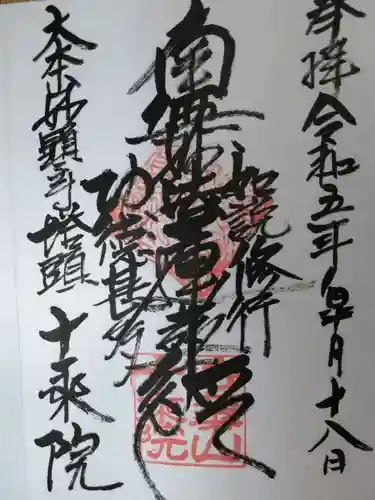 奉拝 令和五年皐月十八日
如説修行
南無妙法蓮華経
功徳甚多
大本山妙顕寺塔頭 十乘院